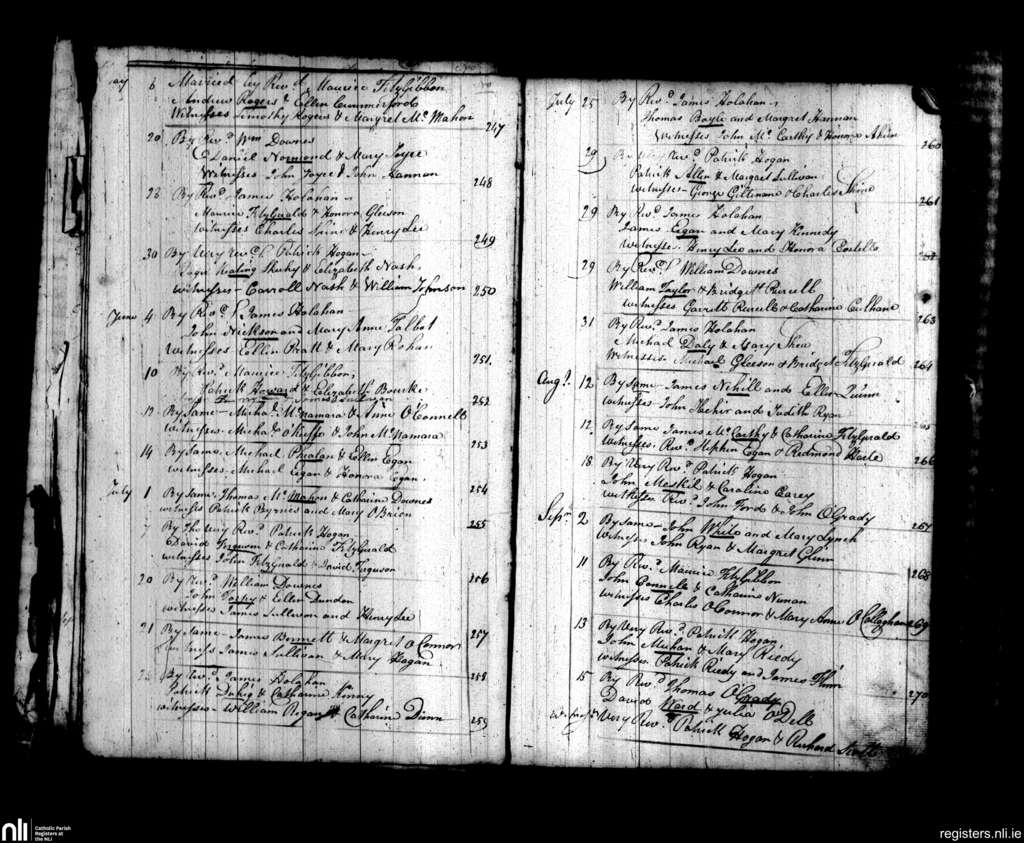 ay 6 Married by Revd Maurice FitzGibbon
Andrew Rogers & Ellen Cummerford
Witnesses Timothy Rogers & Margret Mc Mahon 247
20 By Revd Wm Downes
Daniel Normond & Mary Joyce
Witnesses John Joyce & John Hannon 248
23 By Revd James Holahan
Maurice FitzGerald & Honora Gleeson
witnesses Charles & Henry Lee 249
30 By Very revd Patrick Hogan
Keating Sheehy & Elizabeth Nash
witnesses Carroll Nash & William Johnson 250
June 4 By Revd James Holahan
John Nickson and Mary Anne Talbot
Witnesses Ellen Pratt & Mary Rohan 251.
10 By Revd Maurice FitzGibbon,
Patrick Howard & Elizabeth Bourke
252
13 By Same Michal McNamara & Anne O'Connell
witnesses Michal O'Keeffe & John McNamara 253
14 By Same Michael Phealan & Ellen Egan
witnesses Michael Egan & Honora Egan. 254
July 1 By Same Thomas Mc Mahon & Catharine Downes
witness Patrick Byrnes and Mary O Brien 255
7 By the Very Revd Patrick Hogan
David Ferguson & Catharine FitzGerald
witnesses John FitzGerald & David Ferguson 256
20 By Revd William Downes
John & Ellen Dundon
witnesses James Sullivan and Henry Lee 257
21 By Same James Bennett & Margret O Connor
witness James Sullivan & Mary Hogan 258
By Revd James Holahan
Patrick & Catharine Kenny
witnesses William Regan & Catharine Dunn 259
July 25 By Revd James Holahan
Thomas Boyle and Margret Hannan
Witnesses John Mc Carthy & Honora 260
29 By Very Revd Patrick Hogan
Patrick Allen & Margaret Sullivan
witnesses George Gillinane & Charles 261
29 By Revd James Holahan
James Eagan and Mary Kinnedy
witnesses Henry Lee and Honora Costello 262
29 By Revd William Downes
William Taylor & Bridget Purcell
witnesses Garrett Purcell & Catharine Culhane 263
31 By Revd James Holahan
Michael Daly & Mary Shea
Witnesses Michael Gleeson & Bridget FitzGerald 264
Augt. 12 By Same James Nihill and Ellen Quinn
witnesses John Hehir and Judith Ryan 265
12 By Same James Mc Carthy & Catharine FitzGerald
Witnesses Revd Stephen Egan & Redmond 266
18 By Very Revd Patrick Hogan
John Meskil & Caroline Carey
witnesses Revd John Ford & John O Grady 267
Sepr 2 By Same John White and Mary Lynch
Witnesses John Ryan & Margret Glinn 268
11 By Revd Maurice FitzGibbon
John Connele & Catharine Nunan
witnesses Charles O Connor & Mary Anne O Callaghan 269
13 By Very Revd Patrick Hogan
John Meehan & Mary Riedy
witnesses Patrick Riedy and James 270
15 By Revd Thomas O Grady
David Ward & Julia O Dell
Witness Very Revd Patrick Hogan & Richard
nli Catholic Parish
Registers at
the NLI
registers.nli.ie